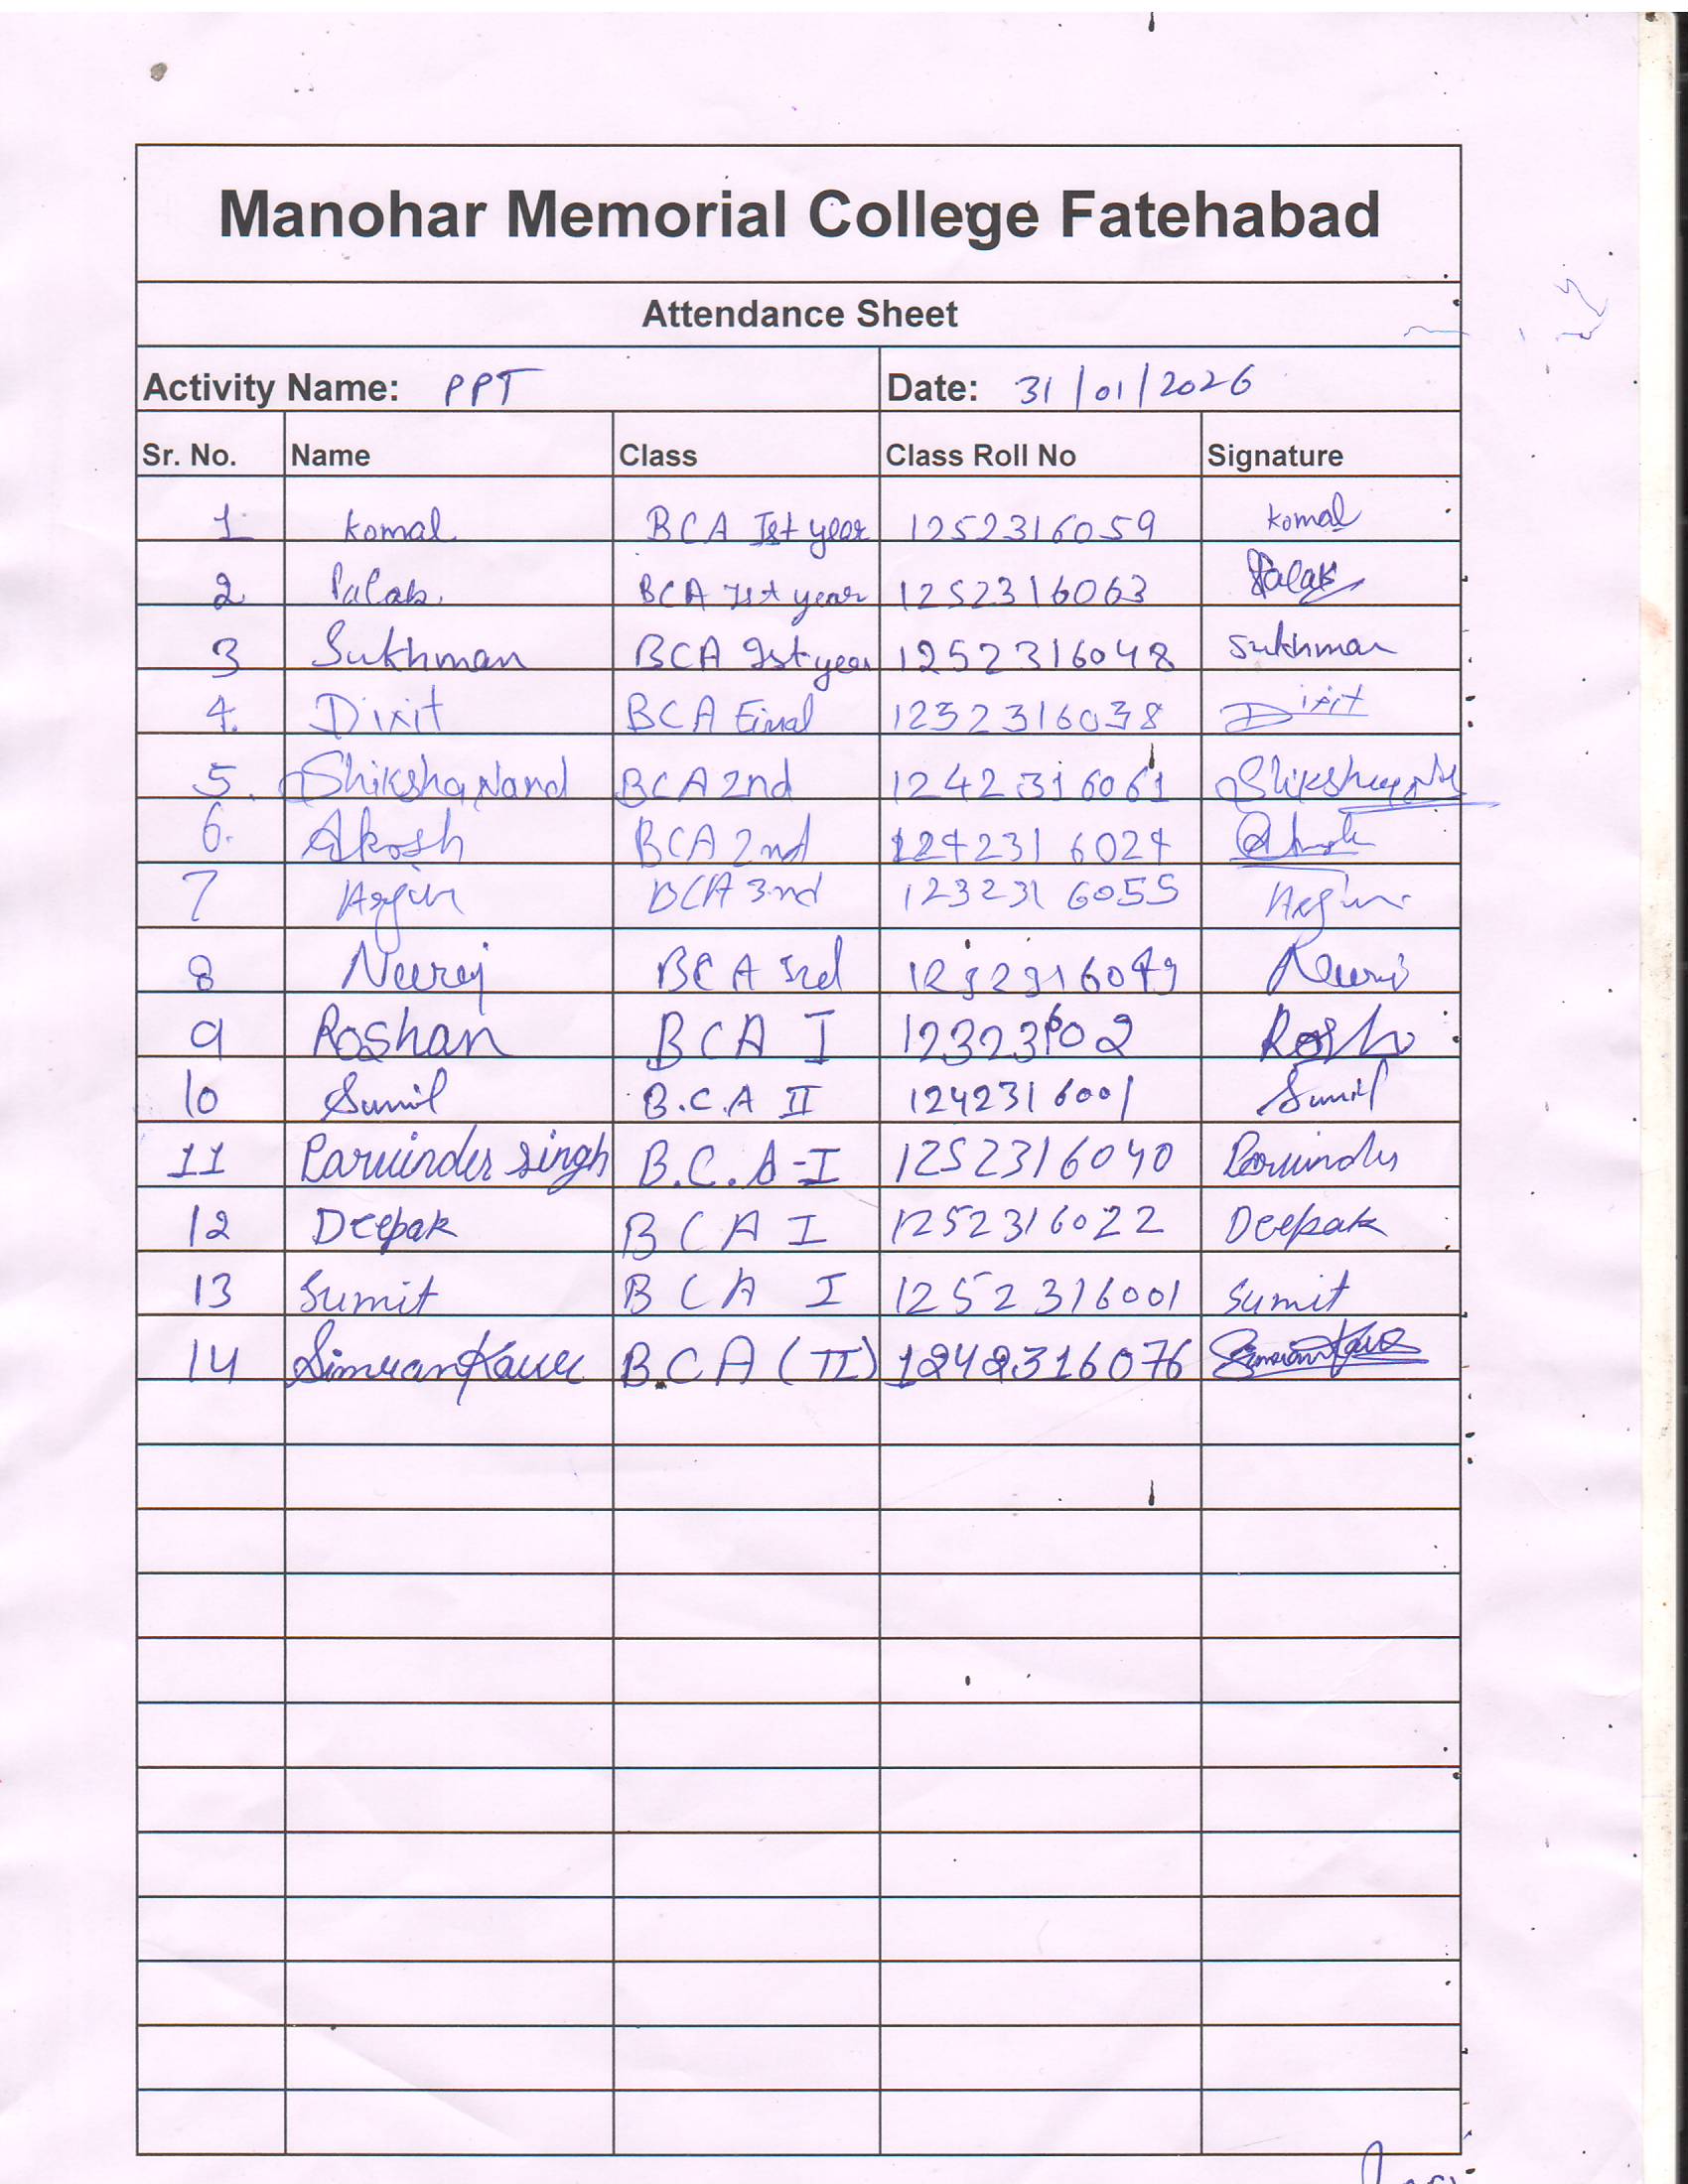 Manohar Memorial College Fatehabad
Attendance Sheet
Activity Name: PPT Date: 31/01/2026
Sr. No. Name Class Class Roll No Signature
1 Komal BCA Ist year 1252316059 Komal
2 Palak BCA Ist year 1252316063 Palak
3 Sukhman BCA Ist year 1252316048 Sukhman
4. Dixit BCA Final 1232316038 Dixit
5. Shiksha Nand BCA 2nd 1242316061
6. Akosh BCA 2nd 1242316024
7 Arjun BCA 3nd 1232316055 Arjun
8 Neeraj BCA 3rd 1232316049 Neeraj
9 Roshan BCA I 123231602 Rosh
10 Sunil B.C.A II 1242316001 Sunil
11 Parwinder Singh B.C.A-I 1252316040 Parwinder
12 Deepak BCA I 1252316022 Deepak
13 Sumit BCA I 1252316001 Sumit
14 Simran Kaur B.C.A (II) 1242316076 Simran Kaur